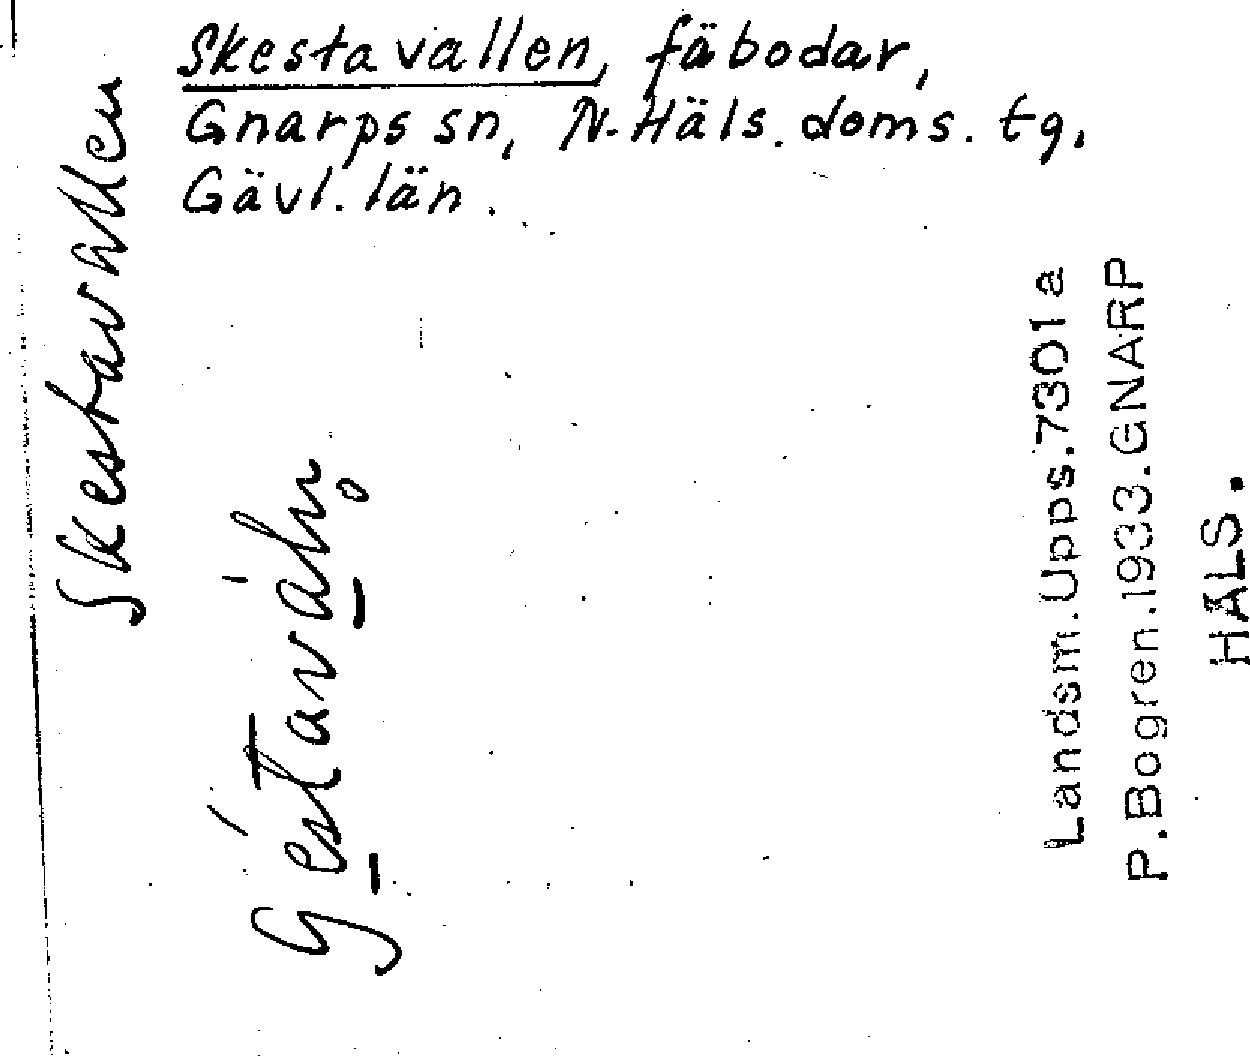 Skestavallen, fäbodar,
Gnarps sn, N. Häls. doms. tg,
Gävl. län.
Skestavallen
Landsm. Upps. 7301 a
P. Bogren. 1933. GNARP
HÄLS.